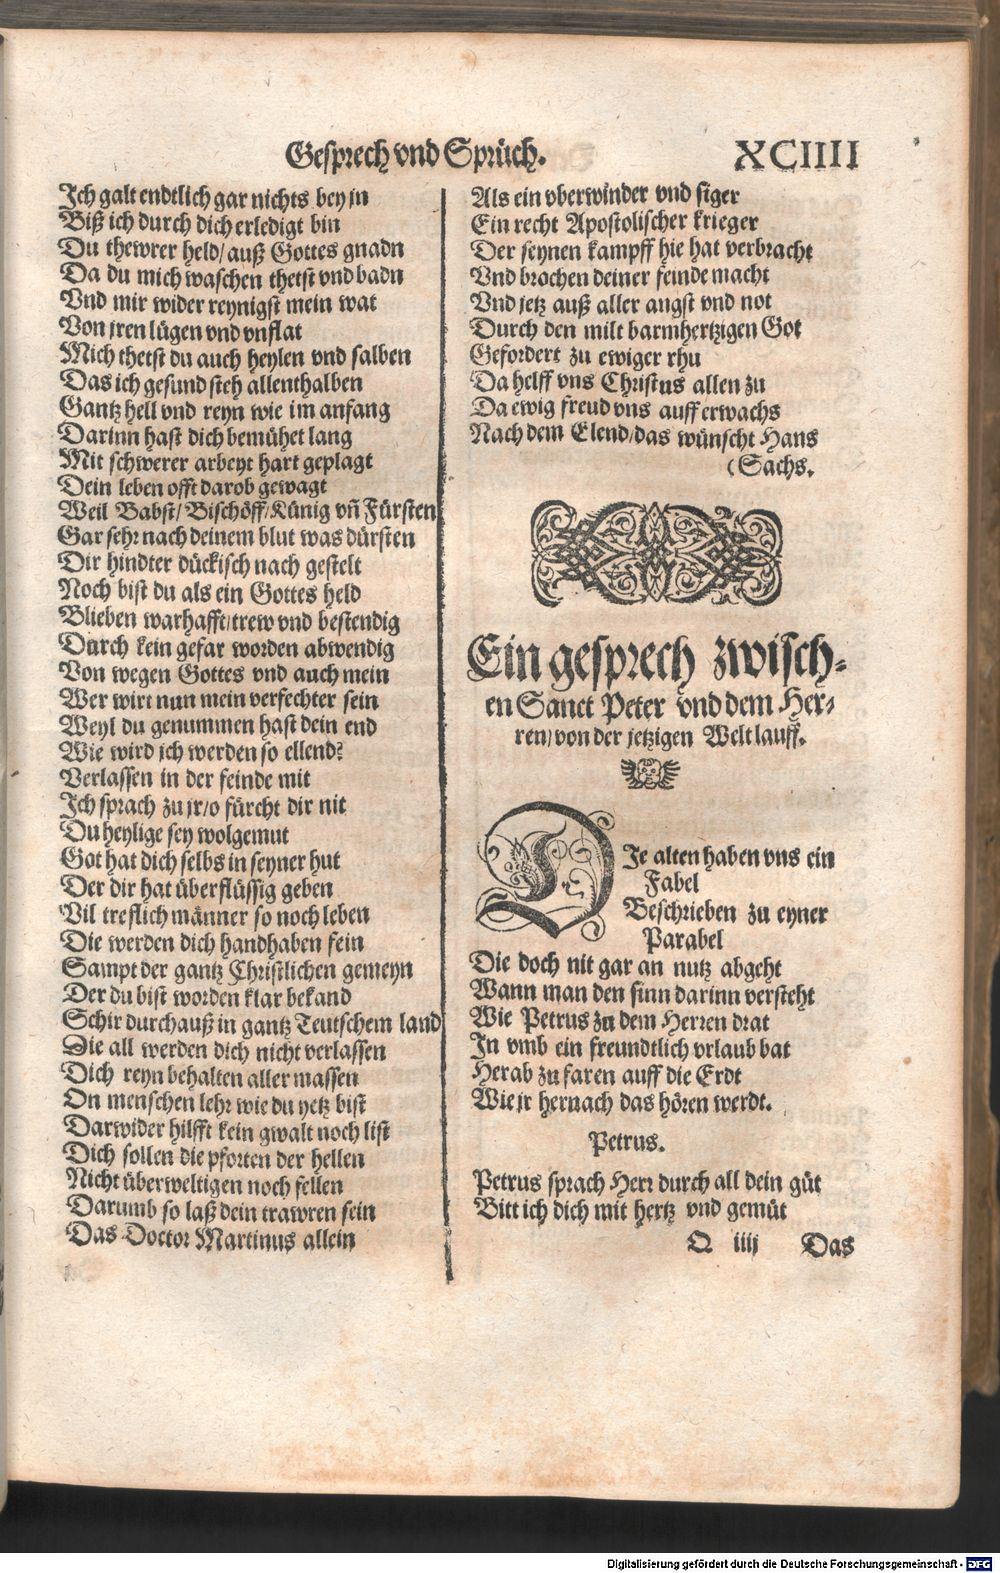 Gesprech vnd Sprüch. XCIIII
Ich galt endtlich gar nichts bey jn
Biß ich durch dich erledigt bin
Du thewrer held/ auß Gottes gnadn
Da du mich waschen thetst vnd badn
Vnd mir wider reynigst mein wat
Von jren lügen vnd vnflat
Mich thetst du auch heylen vnd salben
Das ich gesund steh allenthalben
Gantz hell vnd reyn wie im anfang
Darinn hast dich bemühet lang
Mit schwerer arbeyt hart geplagt
Dein leben offt darob gewagt
Weil Babst/ Bischöff/ Künig vñ Fürsten
Gar sehr nach deinem blut was dürsten
Dir hindter dückisch nach gestelt
Noch bist du als ein Gottes held
Blieben warhafft/ trew vnd bestendig
Durch kein gefar worden abwendig
Von wegen Gottes vnd auch mein
Wer wirt nun mein verfechter sein
Weyl du genummen hast dein end
Wie wird ich werden so ellend?
Verlassen in der feinde mit
Ich sprach zu jr/ o fürcht dir nit
Du heylige sey wolgemut
Got hat dich selbs in seyner hut
Der dir hat überflüssig geben
Vil treflich männer so noch leben
Die werden dich handhaben fein
Sampt der gantz Christlichen gemeyn
Der du bist worden klar bekand
Schir durchauß in gantz Teutschem land
Die all werden dich nicht verlassen
Dich reyn behalten aller massen
On menschen lehr wie du yetz bist
Darwider hilfft kein gwalt noch list
Dich sollen die pforten der hellen
Nicht überweltigen noch fellen
Darumb so laß dein trawren sein
Das Doctor Martinus allein
Als ein vberwinder vnd siger
Ein recht Apostolischer krieger
Der seynen kampff hie hat verbracht
Vnd brochen deiner feinde macht
Vnd jetz auß aller angst vnd not
Durch den milt barmhertzigen Got
Gefordert zu ewiger rhu
Da helff vns Christus allen zu
Da ewig freud vns auff erwachs
Nach dem Elend/ das wünscht Hans
(Sachs.
Ein gesprech zwisch-
en Sanct Peter vnd dem Her-
ren/ von der jetzigen Welt lauff.
DIe alten haben vns ein
Fabel
Beschrieben zu eyner
Parabel
Die doch nit gar an nutz abgeht
Wann man den sinn darinn versteht
Wie Petrus zu dem Herren drat
In vmb ein freundtlich vrlaub bat
Herab zu faren auff die Erdt
Wie jr hernach das hören werdt.
Petrus.
Petrus sprach Herr durch all dein güt
Bitt ich dich mit hertz vnd gemüt
Q iiij Das
Digitalisierung gefördert durch die Deutsche Forschungsgemeinschaft - DFG